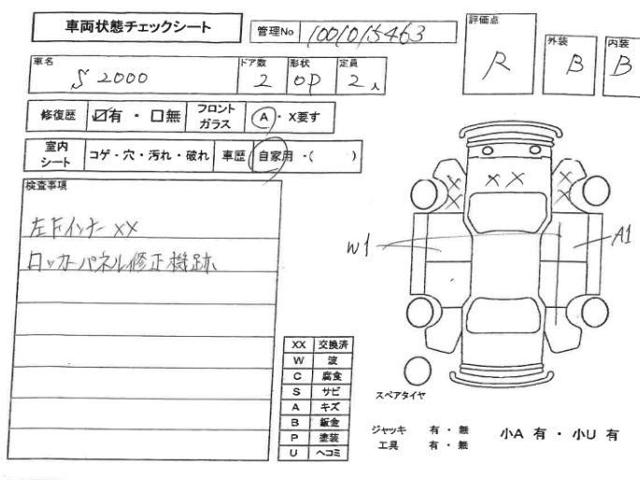 車両状態チェックシート
管理No 1001015463
評価点 R
外装 B
内装 B
車名 S2000
ドア数 2
形状 OP
定員 2人
修復歴 ☑有・□無
フロントガラス A・X要す
室内シート コゲ・穴・汚れ・破れ
車歴 自家用・( )
検査事項
左Fインナー XX
ロッカーパネル修正機跡
X X X X
X X
W1
A1
XX 交換済
W 波
C 腐食
S サビ
A キズ
B 鈑金
P 塗装
U ヘコミ
スペアタイヤ
ジャッキ 有・無
工具 有・無
小A 有・小U 有